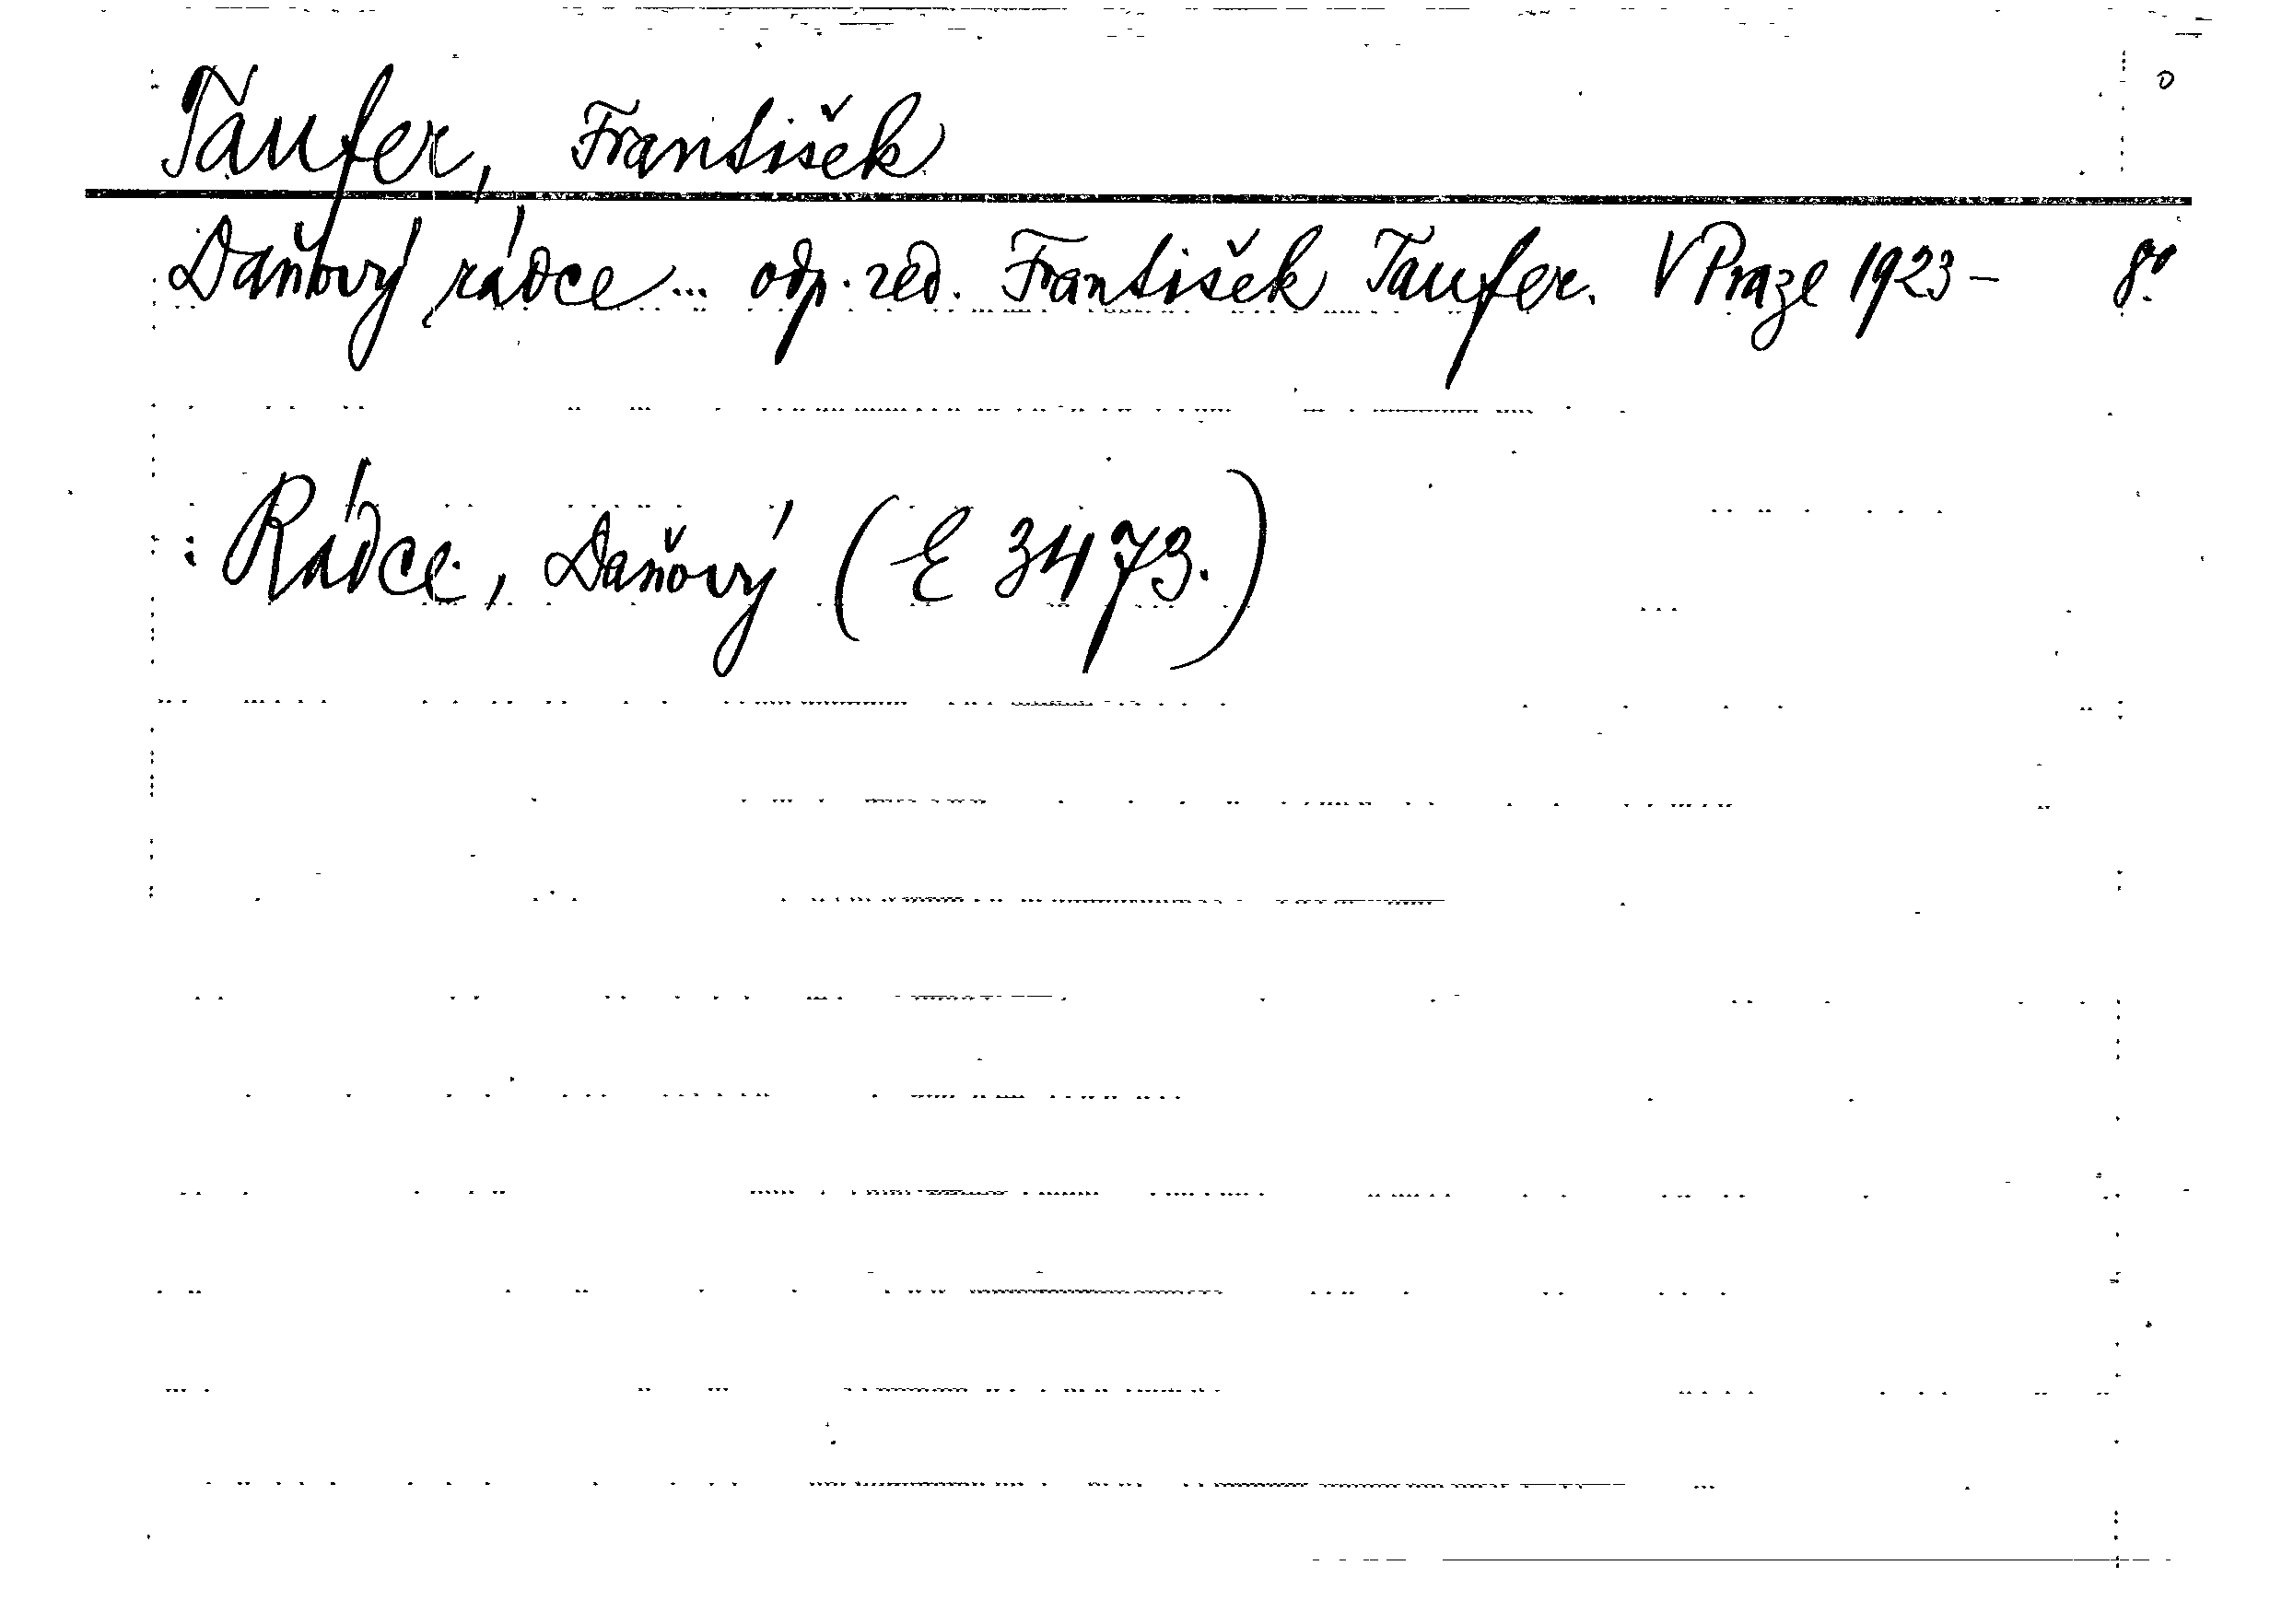 Taufer, František
Daňový rádce... odp. red. František Taufer. V Praze 1923- 8º
: Rádce, Daňový (E 3473.)